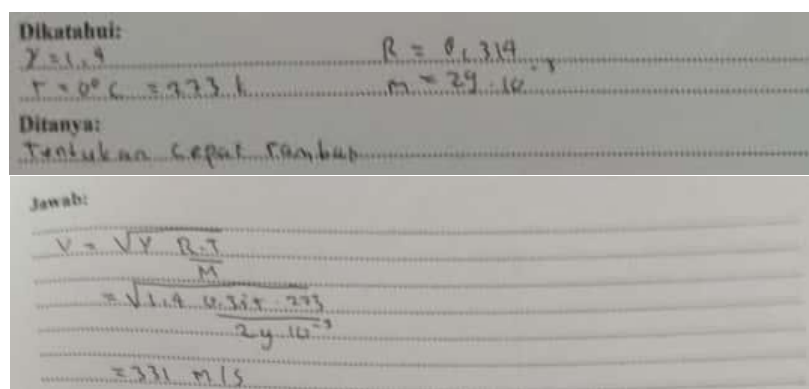 Dikatahui:
γ = 1,4 R = 8,314
T = 0° C = 273 k m = 29 . 10⁻³
Ditanya:
Tentukan Cepat rambap
Jawab:
V = √γ R.T
M
= √1,4 8.314 . 273
29 10⁻³
= 331 M/S